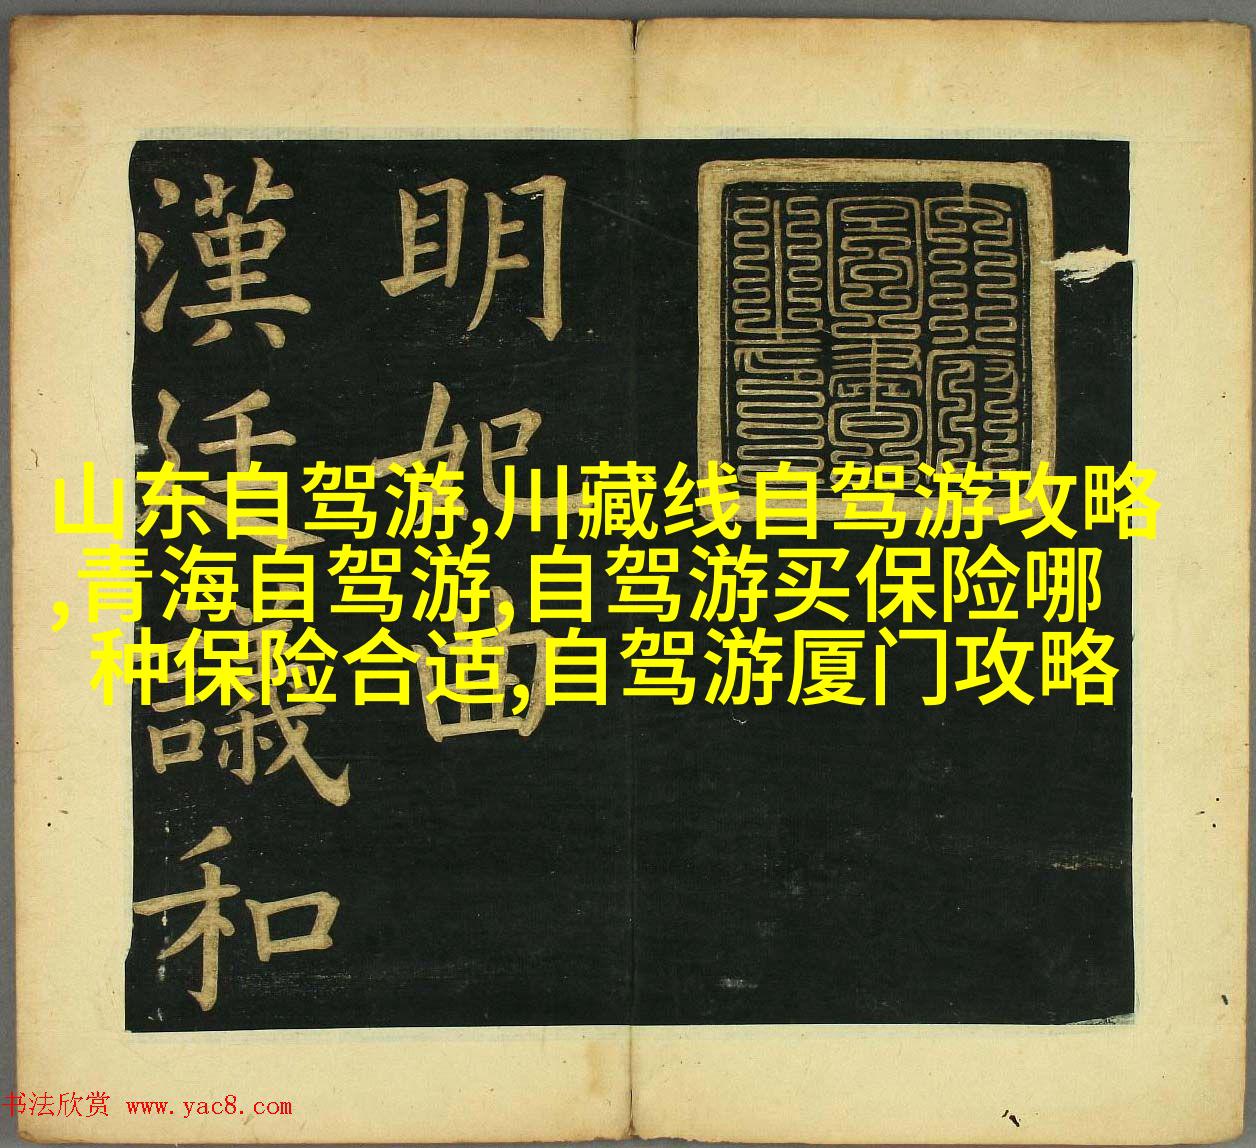 明妃曲
漢廷議和
山东自驾游,川藏线自驾游攻略
,青海自驾游,自驾游买保险哪
种保险合适,自驾游厦门攻略
书法欣赏 www.yac8.com